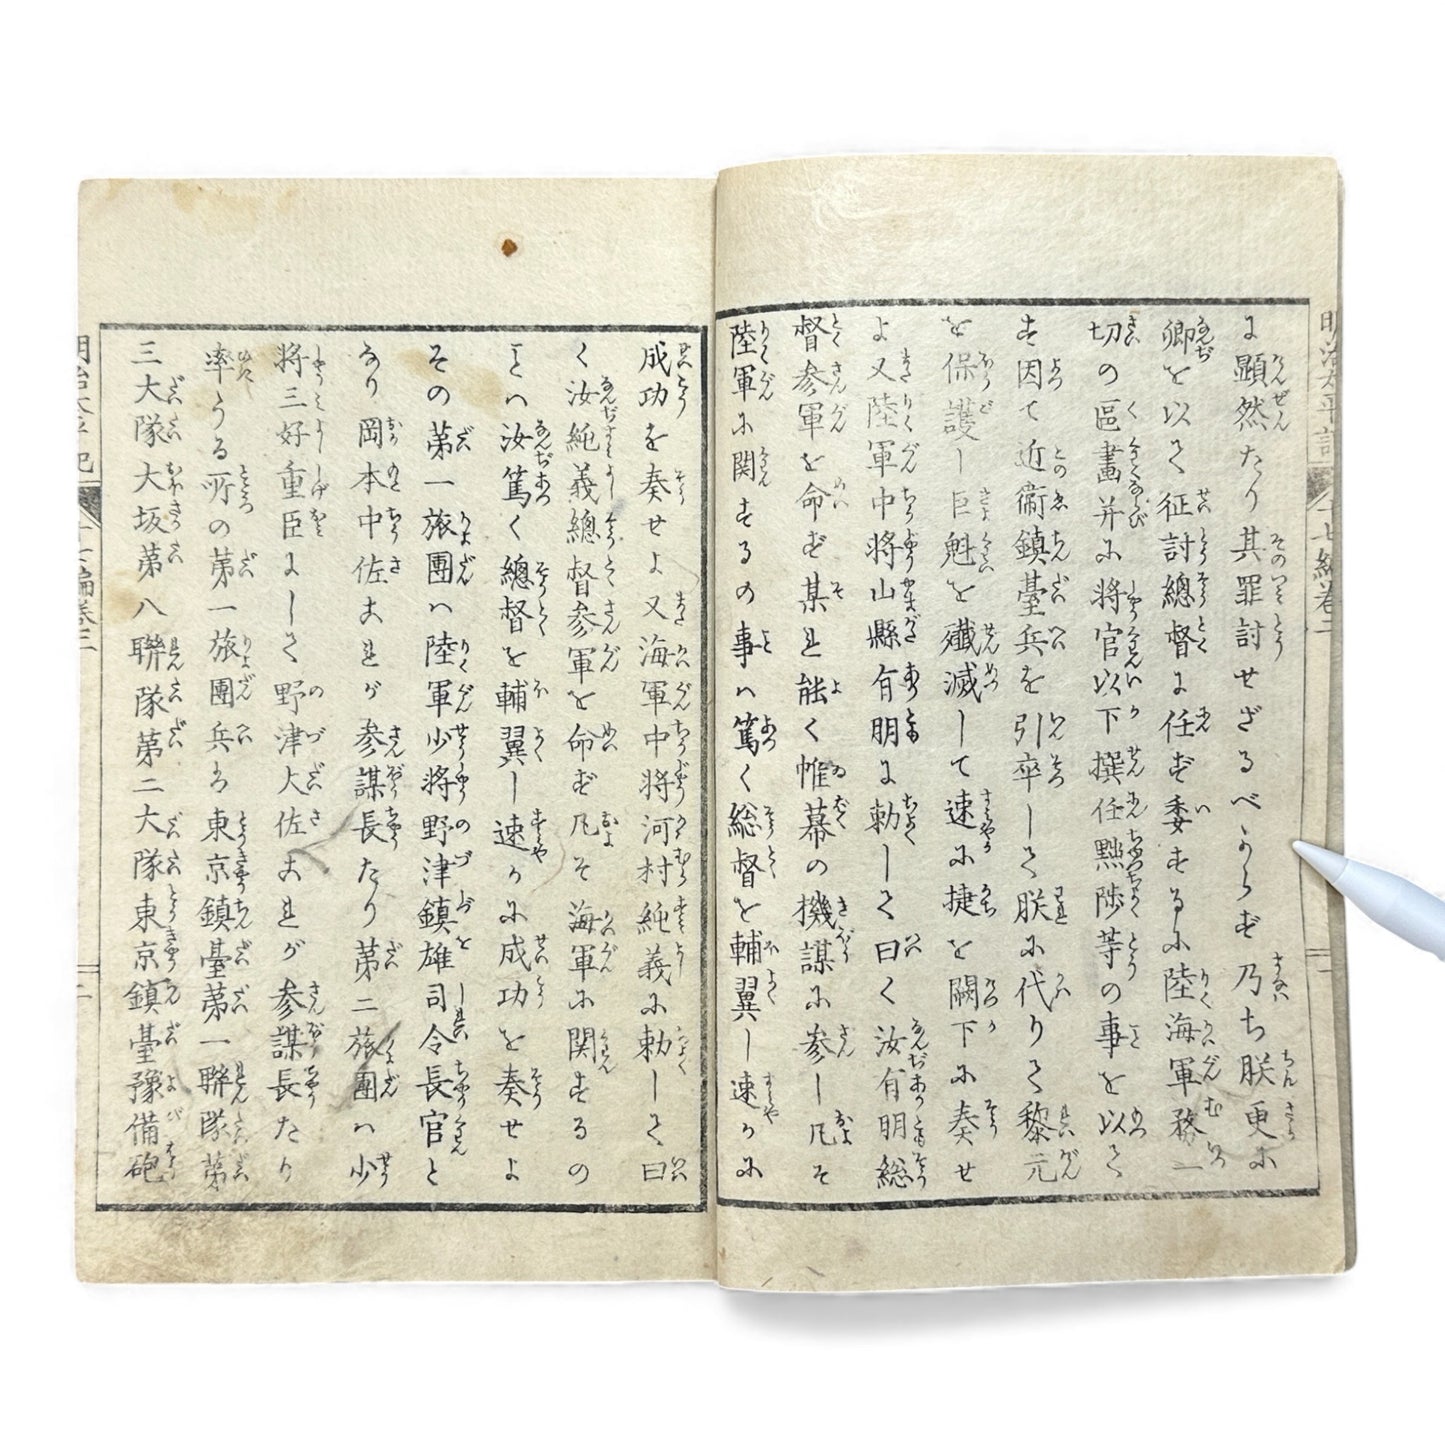 明治太平記 十七編巻二
に顕然たり其罪討せざるべからず乃ち朕更に
卿を以て征討總督に任ず委するに陸海軍務一
切の區畫并に將官以下撰任黜陟等の事を以て
す因て近衞鎮臺兵を引卒して朕に代りて黎元
を保護し巨魁を殲滅して速に捷を闕下に奏せ
よ又陸軍中将山縣有明に勅して曰く汝有明総
督参軍を命ず某れ能く帷幕の機謀に参し凡そ
陸軍に関するの事ハ篤く総督を輔翼し速かに
成功を奏せよ又海軍中将河村純義に勅して曰
く汝純義總督参軍を命ず凡そ海軍に関するの
ことハ汝篤く總督を輔翼し速かに成功を奏せよ
その第一旅團ハ陸軍少将野津鎮雄司令長官と
なり岡本中佐これが参謀長たり第二旅團ハ少
将三好重臣にして野津大佐これが参謀長たり
率うる所の第一旅團兵は東京鎮臺第一聯隊第
三大隊大坂第八聯隊第二大隊東京鎮臺豫備砲